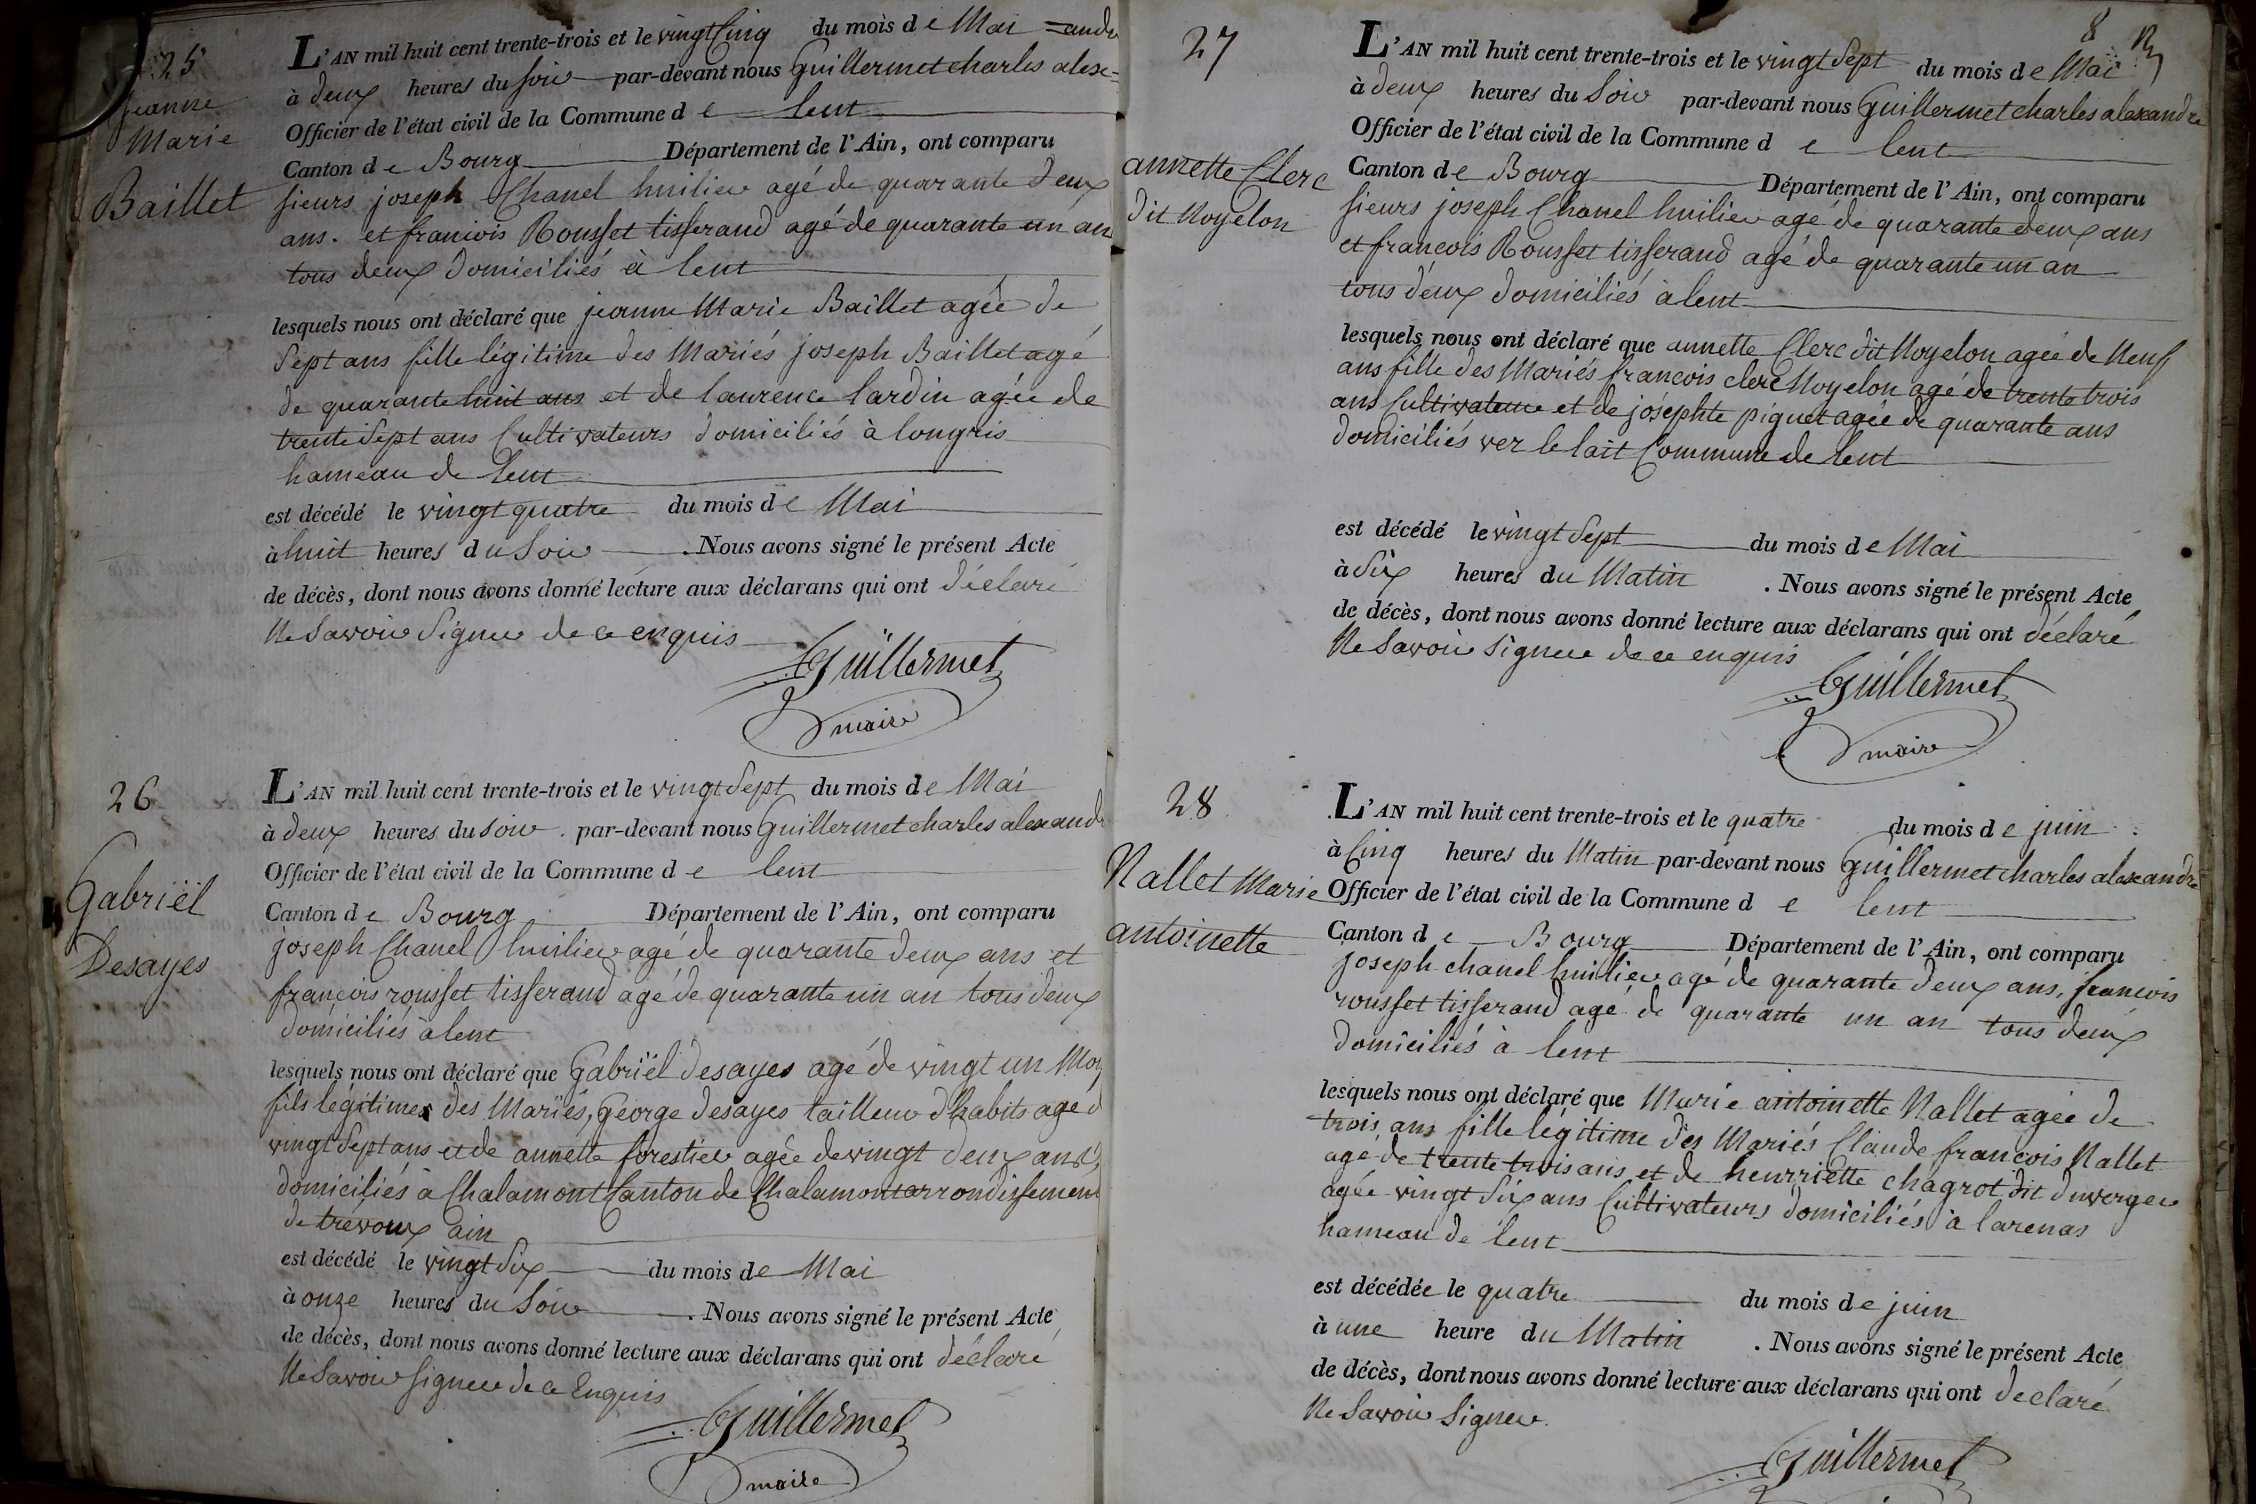 25
jeanne
Marie
Baillet
L'AN mil huit cent trente-trois et le vingt Cinq du mois de Mai =andre
à deux heures du soir par-devant nous Guillermet charles alex=
Officier de l'état civil de la Commune de lent
Canton de Bourg Département de l'Ain, ont comparu
sieurs joseph Chanel huilier agé de quarante deux
ans. et francois Rousset tisserand agé de quarante un an
tous deux domiciliés à lent
lesquels nous ont déclaré que jeanne Marie Baillet agée de
Sept ans fille légitime des Mariés joseph Baillet agé
de quarante huit ans et de laurence lardin agée de
trente Sept ans Cultivateurs domiciliés à longris
hameau de lent
est décédé le vingt quatre du mois de Mai
à huit heures du Soir . Nous avons signé le présent Acte
de décès, dont nous avons donné lecture aux déclarans qui ont déclaré
Ne Savoir Signer de ce enquis
Guillermet
maire
26
Gabriël
Desayes
L'AN mil huit cent trente-trois et le vingt Sept du mois de Mai
à deux heures du soir . par-devant nous Guillermet charles alexand
Officier de l'état civil de la Commune de lent
Canton de Bourg Département de l'Ain, ont comparu
joseph Chanel huilier agé de quarante deux ans et
françois rousset tisserand agé de quarante un an tous deux
domiciliés à lent
lesquels nous ont déclaré que Gabriël desayes agé de vingt un Moy
fils légitimes des Mariés, George desayes tailleur d'habits agé d
vingt Sept ans et de annette forestier agée de vingt deux ans
domiciliés à Chalamont Canton de Chalamont arrondissement
de trevoux ain
est décédé le vingt Six du mois de Mai
à onze heures du Soir . Nous avons signé le présent Acte
de décès, dont nous avons donné lecture aux déclarans qui ont déclaré
Ne Savoir signer de ce Enquis
Guillermet
maire
8
27
annette Clerc
dit Noyelon
L'AN mil huit cent trente-trois et le vingt Sept du mois de Mai
à deux heures du Soir par-devant nous Guillermet charles alexandre
Officier de l'état civil de la Commune de lent
Canton de Bourg Département de l'Ain, ont comparu
sieurs joseph Chanel huilier agé de quarante deux ans
et francois Rousset tisserand agé de quarante un an
tous deux domiciliés à lent
lesquels nous ont déclaré que annette Clerc dit Noyelon agée de Neuf
ans fille des Mariés francois clerc Noyelon agé de trente trois
ans Cultivateur et de josephte piguet agée de quarante ans
domiciliés ver le lait Commune de lent
est décédé le vingt Sept du mois de Mai
à Six heures du Matin . Nous avons signé le présent Acte
de décès, dont nous avons donné lecture aux déclarans qui ont déclaré
Ne Savoir Signer de ce enquis
Guillermet
maire
28
Nallet Marie
antoinette
L'AN mil huit cent trente-trois et le quatre du mois de juin
à Cinq heures du Matin par-devant nous Guillermet charles alexandre
Officier de l'état civil de la Commune de lent
Canton de Bourg Département de l'Ain, ont comparu
joseph chanel huilier agé de quarante deux ans, francois
rousset tisserand agé de quarante un an tous deux
domiciliés à lent
lesquels nous ont déclaré que Marie antoinette Nallet agée de
trois ans fille légitime des Mariés Claude francois Nallet
agé de trente trois ans et de henrriette chagrot dit duverger
agée vingt Six ans Cultivateurs domiciliés à larenas
hameau de lent
est décédée le quatre du mois de juin
à une heure du Matin . Nous avons signé le présent Acte
de décès, dont nous avons donné lecture aux déclarans qui ont declaré
Ne Savoir Signer.
Guillermet